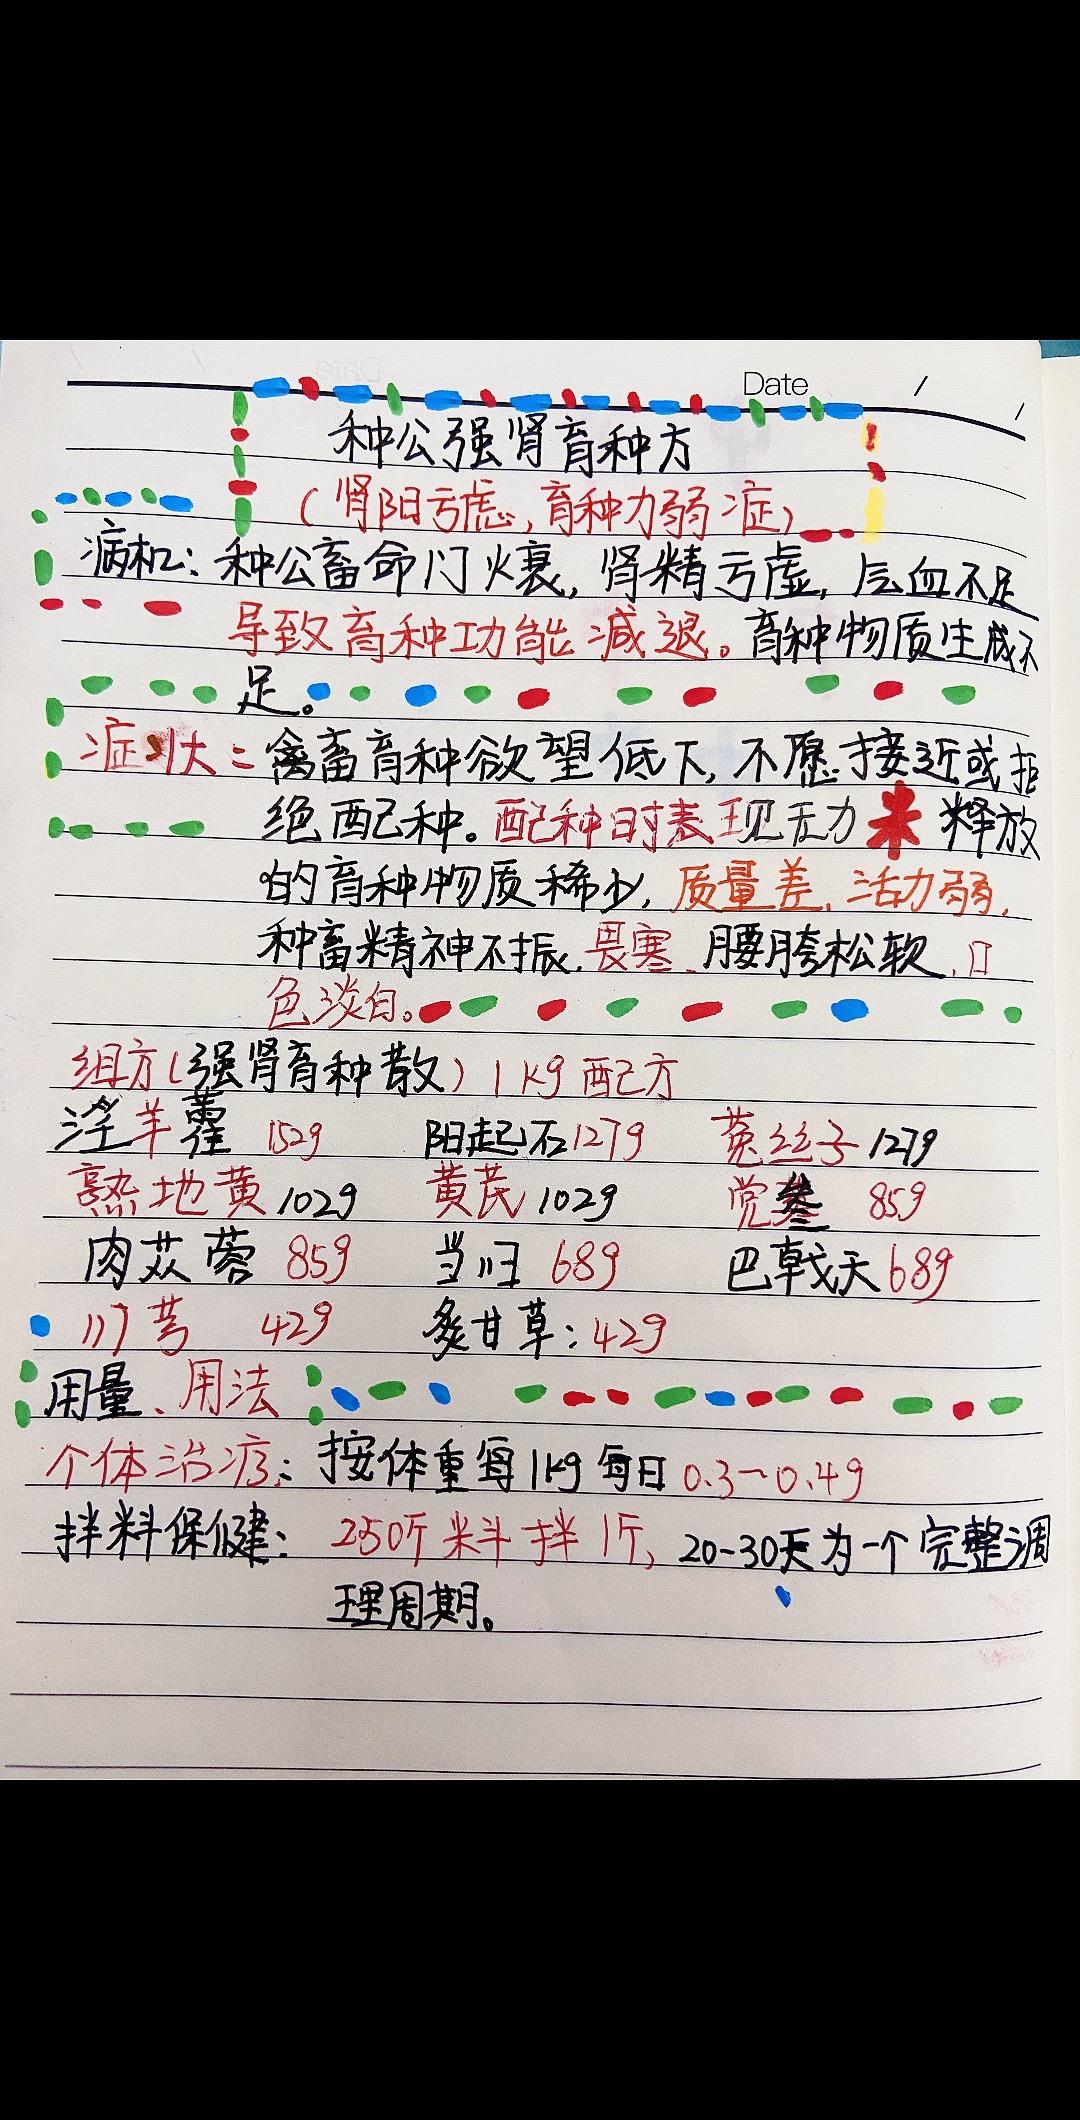 Date / /
种公强肾育种方
(肾阳亏虑,育种力弱症)
病机:种公畜命门火衰,肾精亏虚,气血不足
导致育种功能减退。育种物质生成不
足。
症状:禽畜育种欲望低下,不愿接近或拒
绝配种。配种时表现无力 释放
的育种物质稀少,质量差、活力弱,
种畜精神不振、畏寒、腰胯松软、口
色淡白。
组方(强肾育种散)1kg配方
淫羊藿 152g 阳起石127g 菟丝子127g
熟地黄102g 黄芪102g 党参 85g
肉苁蓉 85g 当归 68g 巴戟天68g
川芎 42g 炙甘草:42g
用量、用法
个体治疗:按体重每1kg每日0.3~0.4g
拌料保健:250斤料拌1斤,20-30天为一个完整调
理周期。